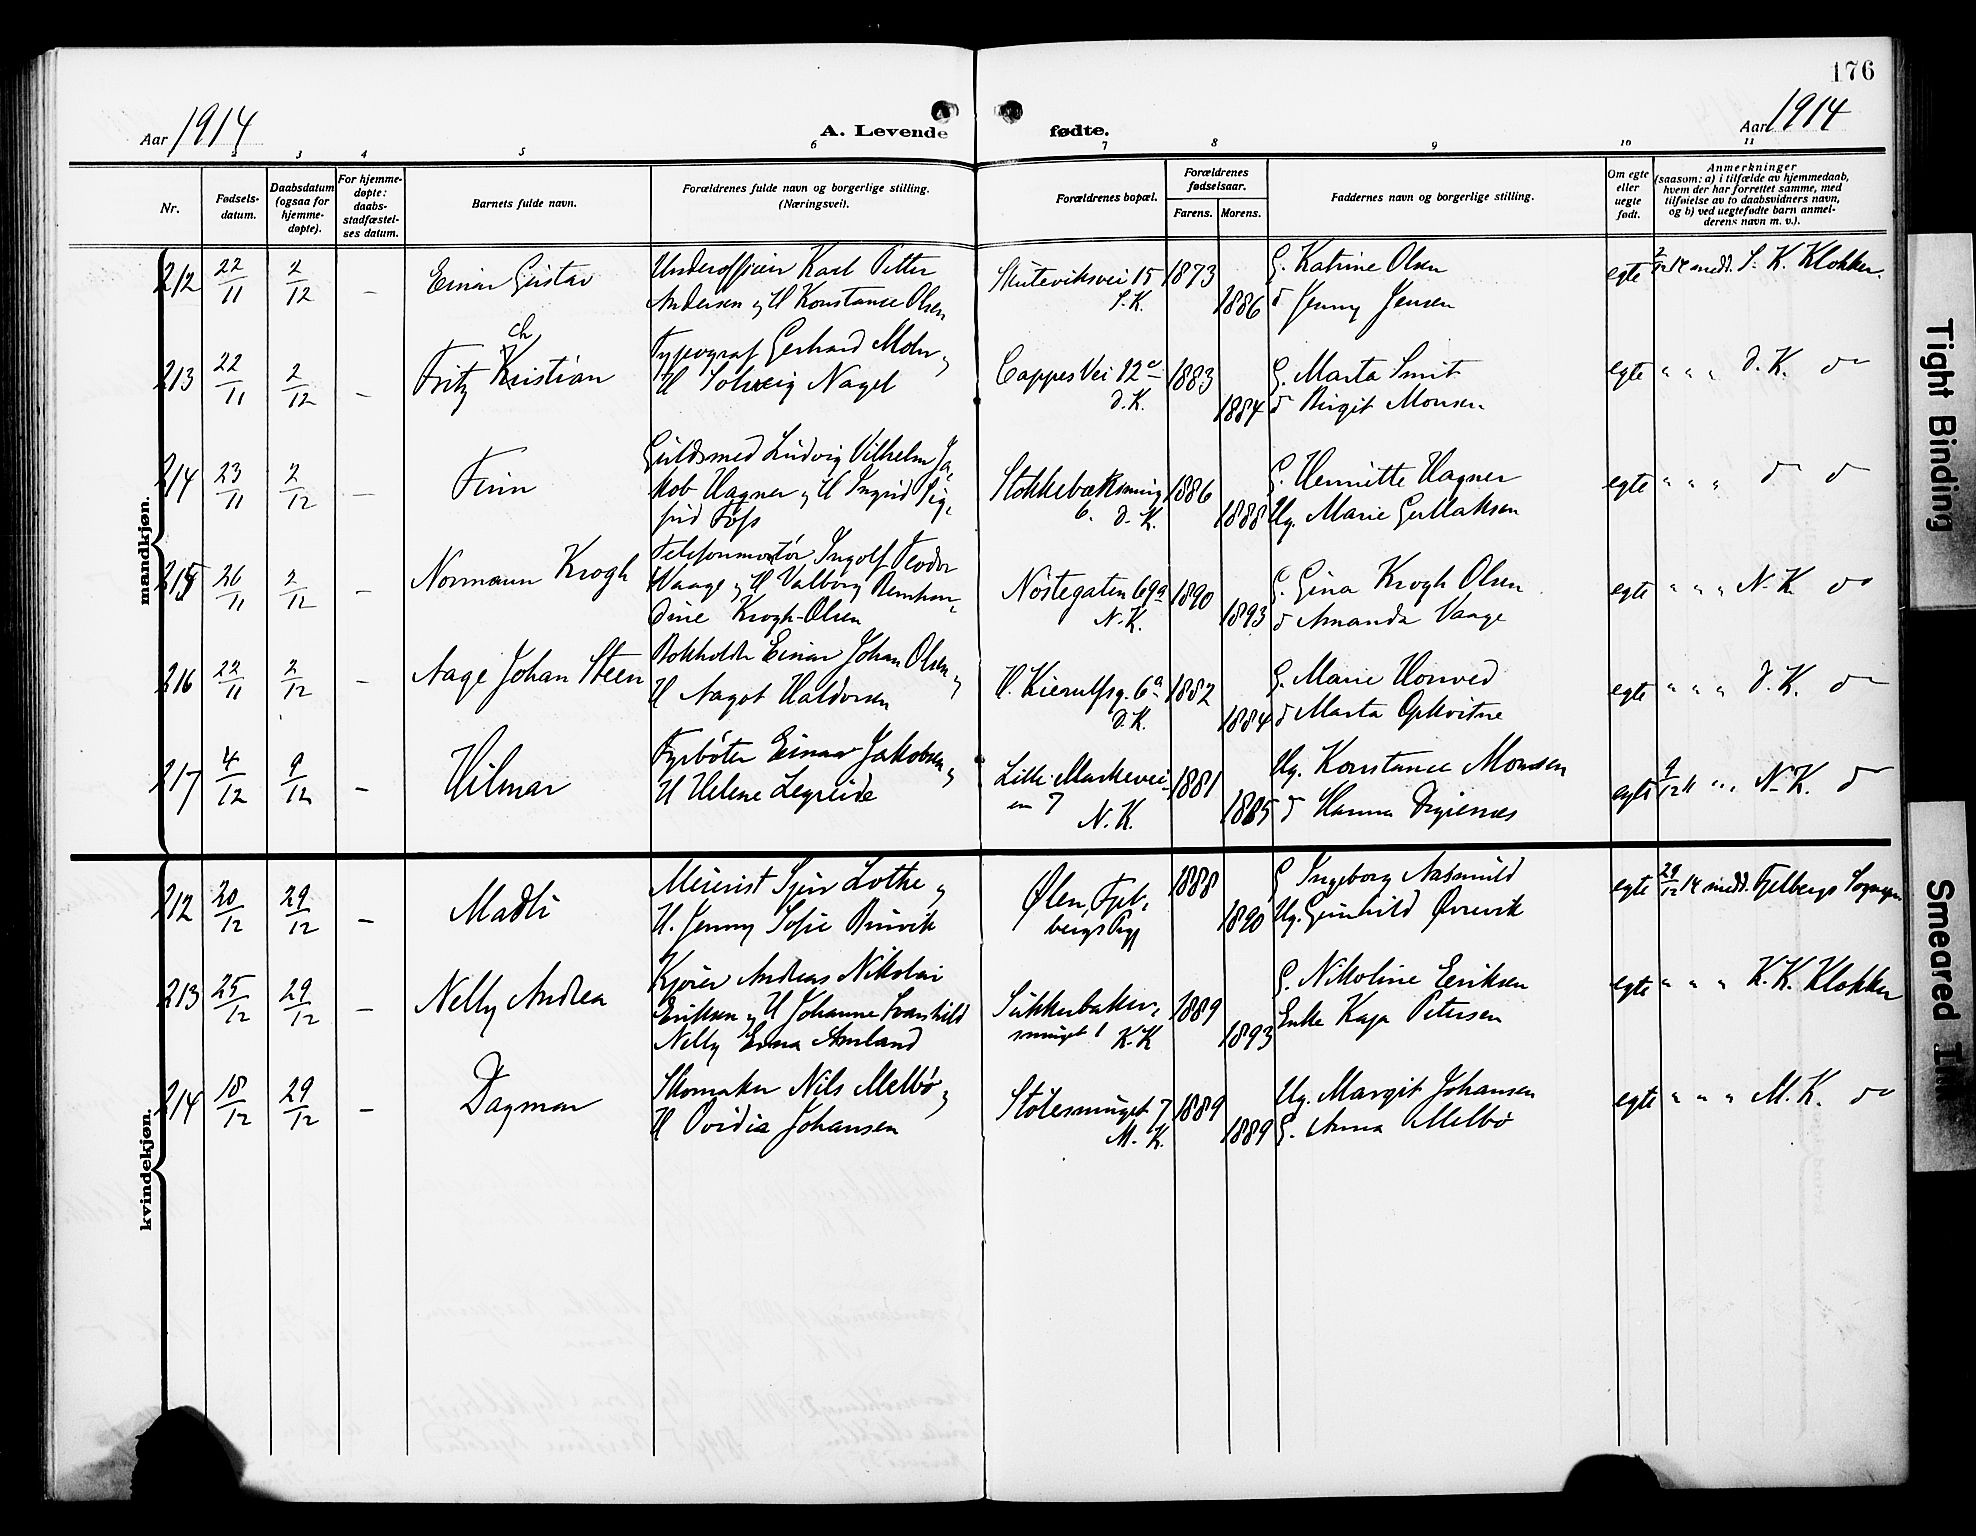 176
Aar 1914
A. Levende fødte.
Aar 1914
2 3 4 5 6 7 8 9 10 11
Nr.
Fødsels-
datum.
Daabsdatum
(ogsaa for
hjemme-
døpte).
For hjemme-
døpte:
daabs-
stadfæstel-
ses datum.
Barnets fulde navn.
Forældrenes fulde navn og borgerlige stilling.
(Næringsvei).
Forældrenes bopæl.
Forældrenes
fødselsaar.
Farens. Morens.
Faddernes navn og borgerlige stilling.
Om egte
eller
uegte
født.
Anmerkninger
(saasom: a) i tilfælde av hjemmedaab,
hvem der har forrettet samme, med
tilføielse av to daabsvidners navn,
og b) ved uegtefødte barn anmel-
derens navn m. v.).
mandkjøn.
212 22/11 2/12 – Einar Gustav
Underofficier Karl Petter
Andersen og H Konstance Olsen
Skuteviksvei 15
S.K.
1873
1886
G. Katrine Olsen
d Jenny Jensen
egte 2/12 14 medd. S. K. Klokker.
213 22/11 2/12 – Fritz Kristian
ch
Typograf Gerhard Mohr og
H Solveig Nagel
Cappes Vei 12
D.K.
1883
1884
G. Marta Smit
d Birgit Monsen
egte " " " D. K. do
214 23/11 2/12 – Finn
Guldsmed Ludvig Vilhelm Ja-
kob Hagner og H Ingrid Sig-
frid Foss
Stokkebæksmug
6. D. K.
1886
1888
G. Henriette Hagner
Ug. Marie Gerlaksen
egte " " " do do
215 26/11 2/12 – Normann Krogh
Telefonmontør Ingolf Teodor
Waage og H Valborg Bernhar-
dine Krogh-Olsen
Nøstegaten 69a
N.K.
1890
1893
G. Gina Krogh Olsen
d Amanda Vaage
egte " " " N. K. do
216 22/11 2/12 – Aage Johan Steen
Bokholder Einar Johan Olsen og
H Aagot Haldorsen
H. Kierulfsg. 6a
D.K.
1882
1884
G. Marie Horved
d Marta Opkvitne
egte " " " D. K. do
217 4/12 9/12 – Hilmar
Fyrbøter Einar Jakobsen og
H Helene Legreide
Lille Markevei-
en 7
N. K.
1881
1885
Ug. Konstance Monsen
d Hanna
egte 9/12 14 " " N. K. do
kvindekjøn.
212 20/12 29/12 – Madli
Meierist Sjur Lothe og
H. Jenny Sofie
Ølen, Fjel-
bergs Prg
1888
1890
G Ingeborg
Ug. Gunhild Øvrevik
egte 29/12 14 medd. Fjelbergs Sognepr.
213 25/12 29/12 – Nelly Andrea
Kjører Andreas Nikolai
Eriksen og H Johanne Svanhild
Nelly Erna Amland
Sukkerbaker-
smuget 1 K.K
1889
1893
G. Nikoline Eriksen
Enke Kaja Petersen
egte " " " K. K. Klokker
214 18/12 29/12 – Dagmar
Skomaker Nils Melbø og
H Ovidia Johansen
Stølesmuget 7
M. K.
1889
1889
Ug. Margit Johansen
G. Anna Melbø
egte " " " M. K. do
Tight Binding
Smeared Ink